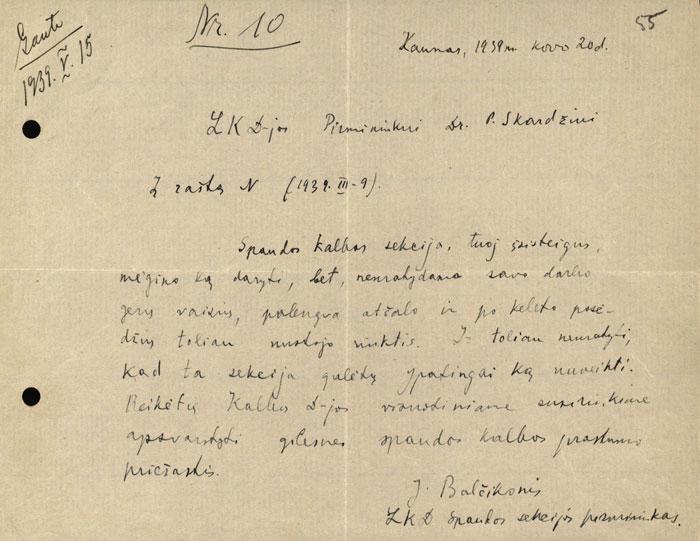 Gauta
1939.V.15
Nr. 10
55
Kaunas, 1939 m. kovo 20 d.
LKD-jos Pirmininkui Dr. P. Skardžiui
Į raštą N (1939.III-9).
Spaudos kalbos sekcija, tuoj įsisteigus,
mėgino ką daryti, bet, nematydama savo darbo
gerų vaisių, palengva atšalo ir po keleto posė-
džių toliau nustojo rinktis. Iš toliau nematyti,
kad ta sekcija galėtų ypatingai ką nuveikti.
Reikėtų Kalbos D-jos visuotiniame susirinkime
apsvarstyti gilesnes spaudos kalbos prastumo
priežastis.
J. Balčikonis
LKD Spaudos sekcijos pirmininkas.